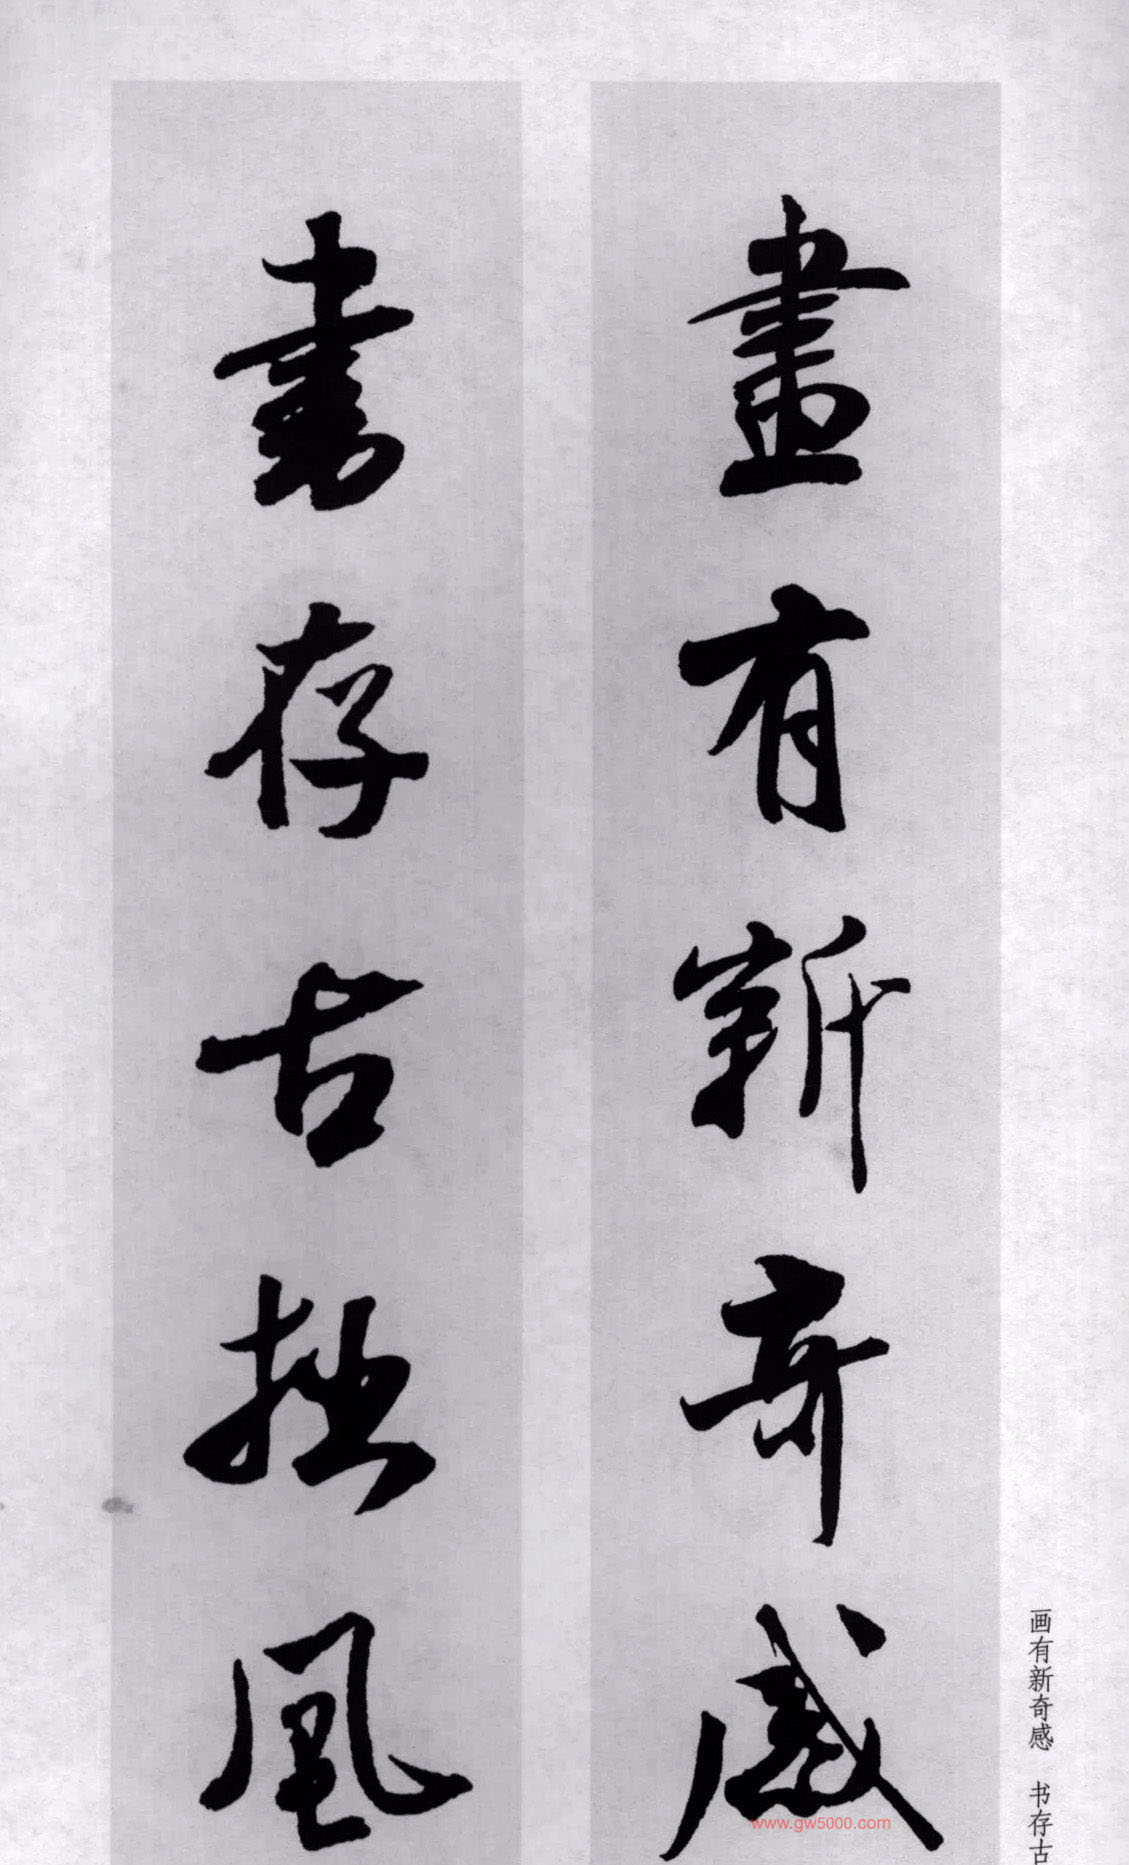 畫有新奇感
書存古拙風
画有新奇感 书存古
www.gw5000.com